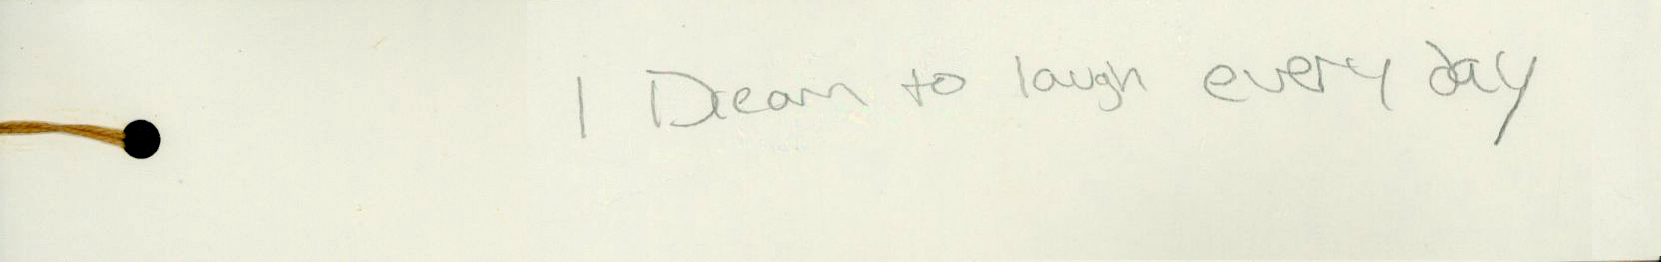 I Dream to laugh every day